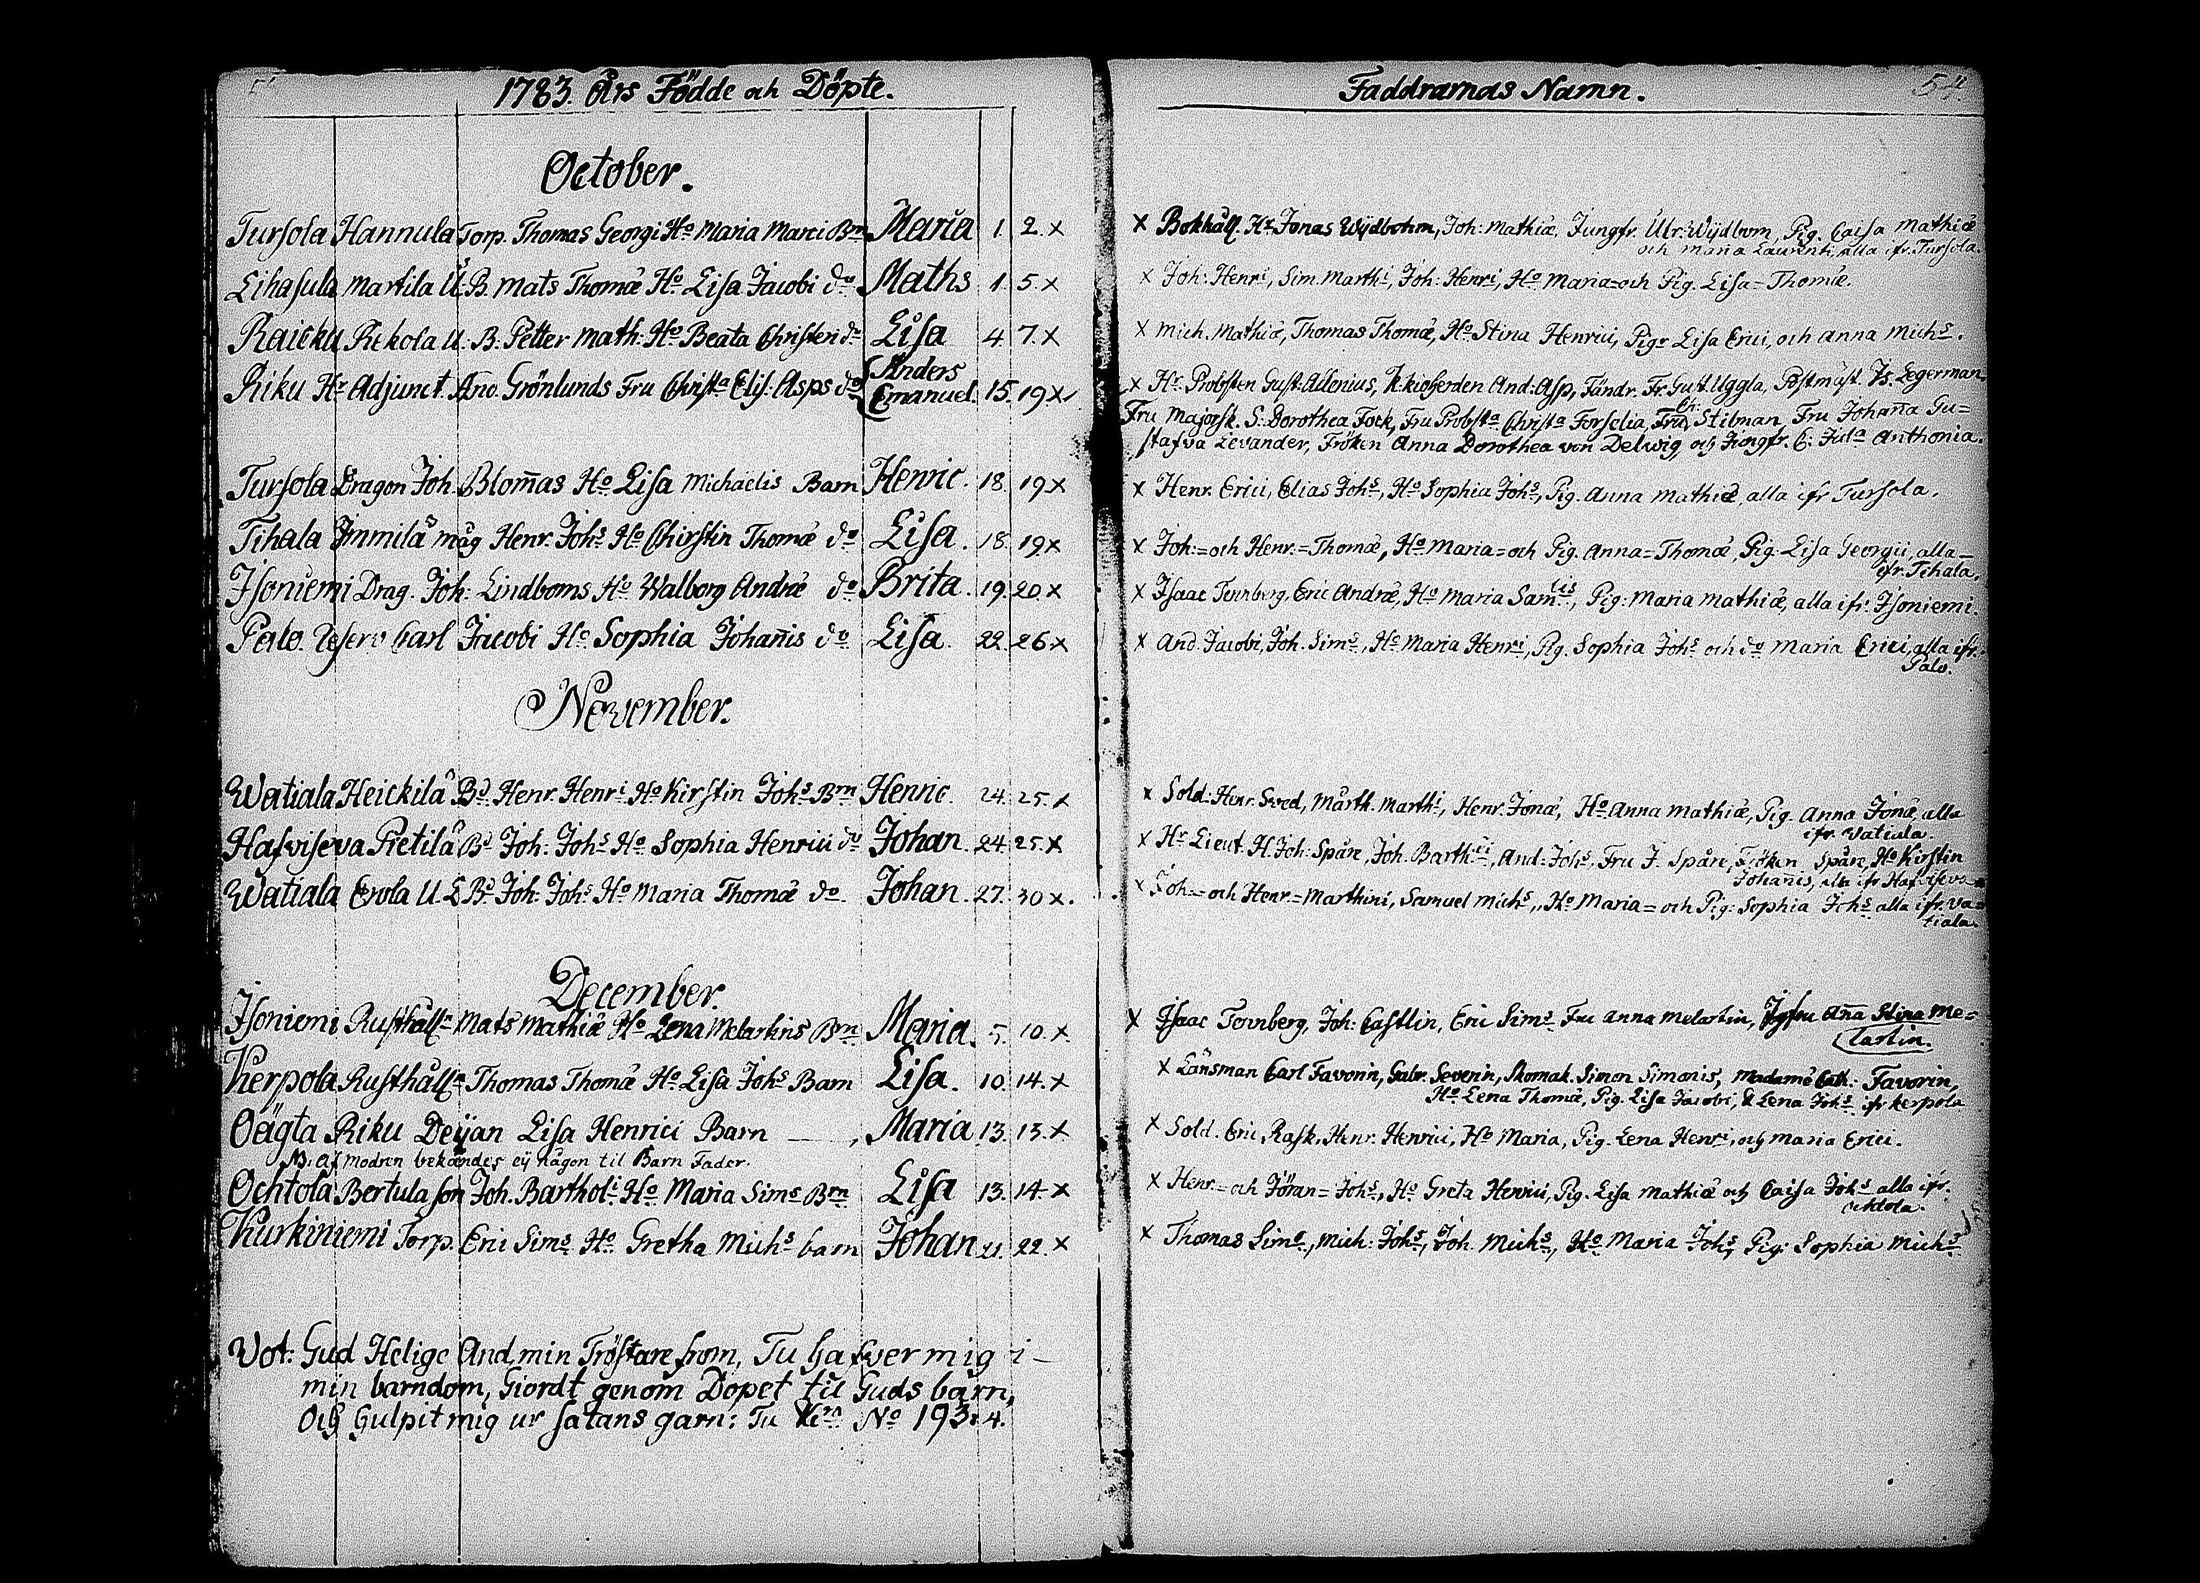 1783. Års Födde och Döpte.
October.
Tursola Hannula Torp. Thomas Georgi Ho Maria Marci Brn Maria 1. 2. x
Lihasula Martila U. B. Mats Thomæ Ho Lisa Jacobi do Maths 1. 5. x
Raicku Rekola U. B. Petter Math: Ho Beata Christeri do Lisa 4. 7. x
Riku Hr Adjunct. Ano. Grönlunds Fru Christa Elis: Asps do Anders
Emanuel. 15. 19 x
Tursola Dragon Joh. Blom̄as Ho Lisa Michaelis Barn Henric. 18. 19 x
Tihala Immilä måg Henr. Johs Ho Chirstin Thomæ do Lisa. 18. 19 x
Isoniemi Drag. Joh: Lindboms Ho Walborg Andræ do Brita. 19. 20 x
Palo. Reserv Carl Jacobi Ho Sophia Johan̄is do Lisa. 22. 26. x
November.
Watiala Heickilä Bd. Henr. Henri Ho Kirstin Johs Brn Henric. 24. 25. x
Hafviseva Pietilä Bd Joh: Johs Ho Sophia Henrici do Johan. 24. 25. x
Watiala Erola U. L Bd. Joh: Johs Ho Maria Thomæ do Johan. 27. 30 x.
December.
Isoniemi Rusthålln Mats Mathiæ Ho Lena Melartins Brn Maria. 5. 10. x
Kerpola Rusthålln Thomas Thomæ Ho Lisa Johs Barn Lisa. 10. 14. x
Oägta Riku Deijan Lisa Henrici Barn — , Maria 13. 13. x
NB. af modren bekändes ej någon til Barn Fader.
Ochtola Bertula son Joh. Bartholi Ho Maria Sims Brn Lisa 13. 14. x
Kurkiniemi Torp. Erici Sims Ho Gretha Michs barn Johan 21. 22. x
Vot: Gud Helige And, min Tröstare from, Tu hafver mig i
min barndom, Giordt genom Dopet til Guds barn,
Och hulpit mig ur satans garn: Tu No 193: 4.
Faddrarnas Namn. 54.
x Bokhåll. Hr Jonas Wijdbohm, Joh: Mathiæ, Jungfr. Ulr: Wijdbom, Pig. Caisa Mathiæ
och Maria Laurenti alla ifr. Tursola.
x Joh: Henri, Sim. Marthi, Joh: Henri, Ho Maria= och Pig. Lisa= Thomæ.
x Mich. Mathiæ, Thomas Thomæ, Ho Stina Henrici, Pigr Lisa Erici, och Anna Michs.
x Hr. Probsten Gust: Allenius, Kkioherden And: Asp, Fändr. Fr. Gust. Uggla, Postmäst. Is. Legerman,
Fru Majorsk. S: Dorothea Fock, Fru Probsta Christa Forselia, Fru Ch: Stilman, Fru Johan̄a Gu=
stafva Levander, Fröken Anna Dorothea von Delwig, och Jungfr. C: Jula Anthonia.
x Henr. Erici, Elias Johs, Ho Sophia Johs, Pig. Anna Mathiæ, alla ifr Tursola.
x Joh:= och Henr.= Thomæ, Ho Maria= och Pig. Anna= Thomæ, Pig: Lisa Georgii, alla
ifr. Tihala.
x Isaac Tennberg, Eric Andræ, Ho Maria Samlis, Pig: Maria Mathiæ, alla ifr. Isoniemi.
x And. Jacobi, Joh. Sims, Ho Maria Henri, Pig. Sophia Johs och do Maria Erici, alla ifr.
Palo.
x Sold: Henr. Sved, Märth. Marthi, Henr. Jonæ, Ho Anna Mathiæ, Pig. Anna Jonæ, alla
ifr. Vatiala.
x Hr Lieut. H. Joh: Spåre, Joh. Barthii, And: Johs, Fru J. Spåre, Fröken Spåre, Ho Kirstin
Johan̄is, alla ifr Hafviseva
x Joh:= och Henr.= Marthini, Samuel Michs, Ho Maria= och Pig: Sophia Johs alla ifr. Va=
tiala.
x Isaac Tennberg, Joh: Castlin, Eric Sims Fru Anna Melartin, Jgfru An̄a Stina Me=
lartin.
x Länsman Carl Favorin, Gabr. Severin, Skomak. Simon Simonis, Madame Cath: Favorin,
Ho Lena Thomæ, Pig. Lisa Jacobi, & Lena Johs ifr Kerpola
x Sold. Eric Rask, Henr. Henrici, Ho Maria, Pig. Lena Henri, och Maria Erici.
x Henr.= och Jöran= Johs, Ho Greta Henrici, Pig. Lisa Mathiæ och Caisa Johs alla ifr.
Ochtola.
x Thomas Sims, Mich: Johs, Joh. Michs, Ho Maria Johs, Pig: Sophia Michs